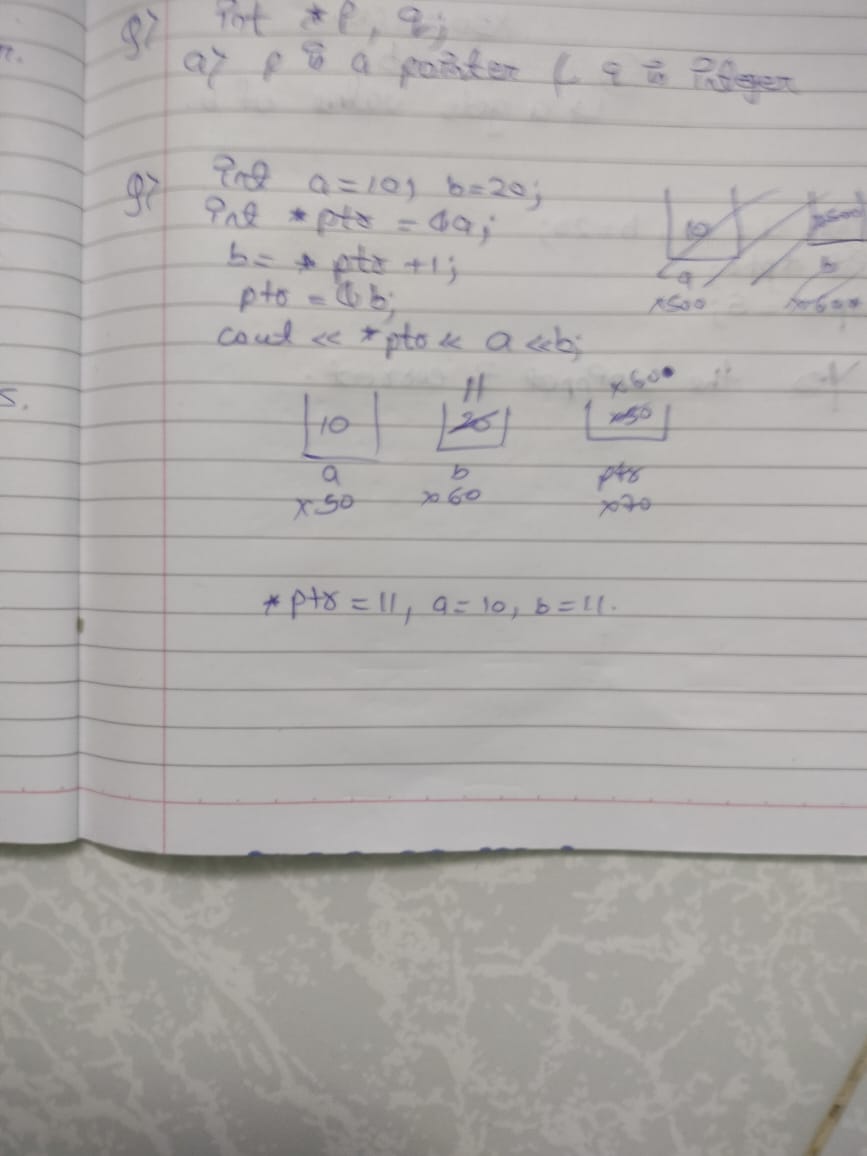 n.
Q> int *p, q;
a> p is a pointer & q is integer
Q> int a=10, b=20;
int *ptr = &a;
b= *ptr +1;
ptr = &b;
cout << *ptr << a << b;
10
a b
x500 x600
s.
11 x60
10 20 x50
a b ptr
x50 x60 x70
*ptr = 11, a=10, b=11.